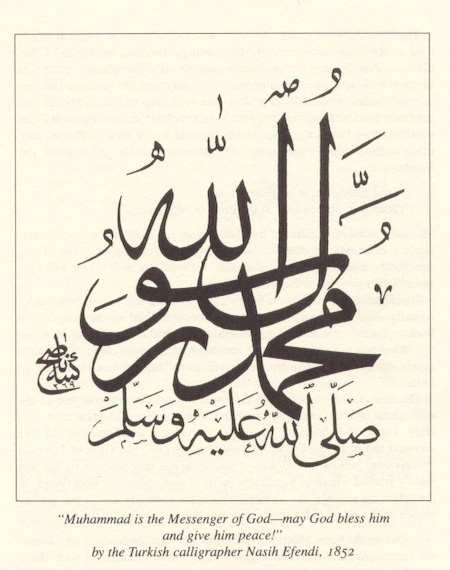 محمد رسول الله
كتبه ناصح
صَلَّى اللّٰه عَلَيْهِ وَسَلَّمَ
“Muhammad is the Messenger of God—may God bless him
and give him peace!”
by the Turkish calligrapher Nasih Efendi, 1852